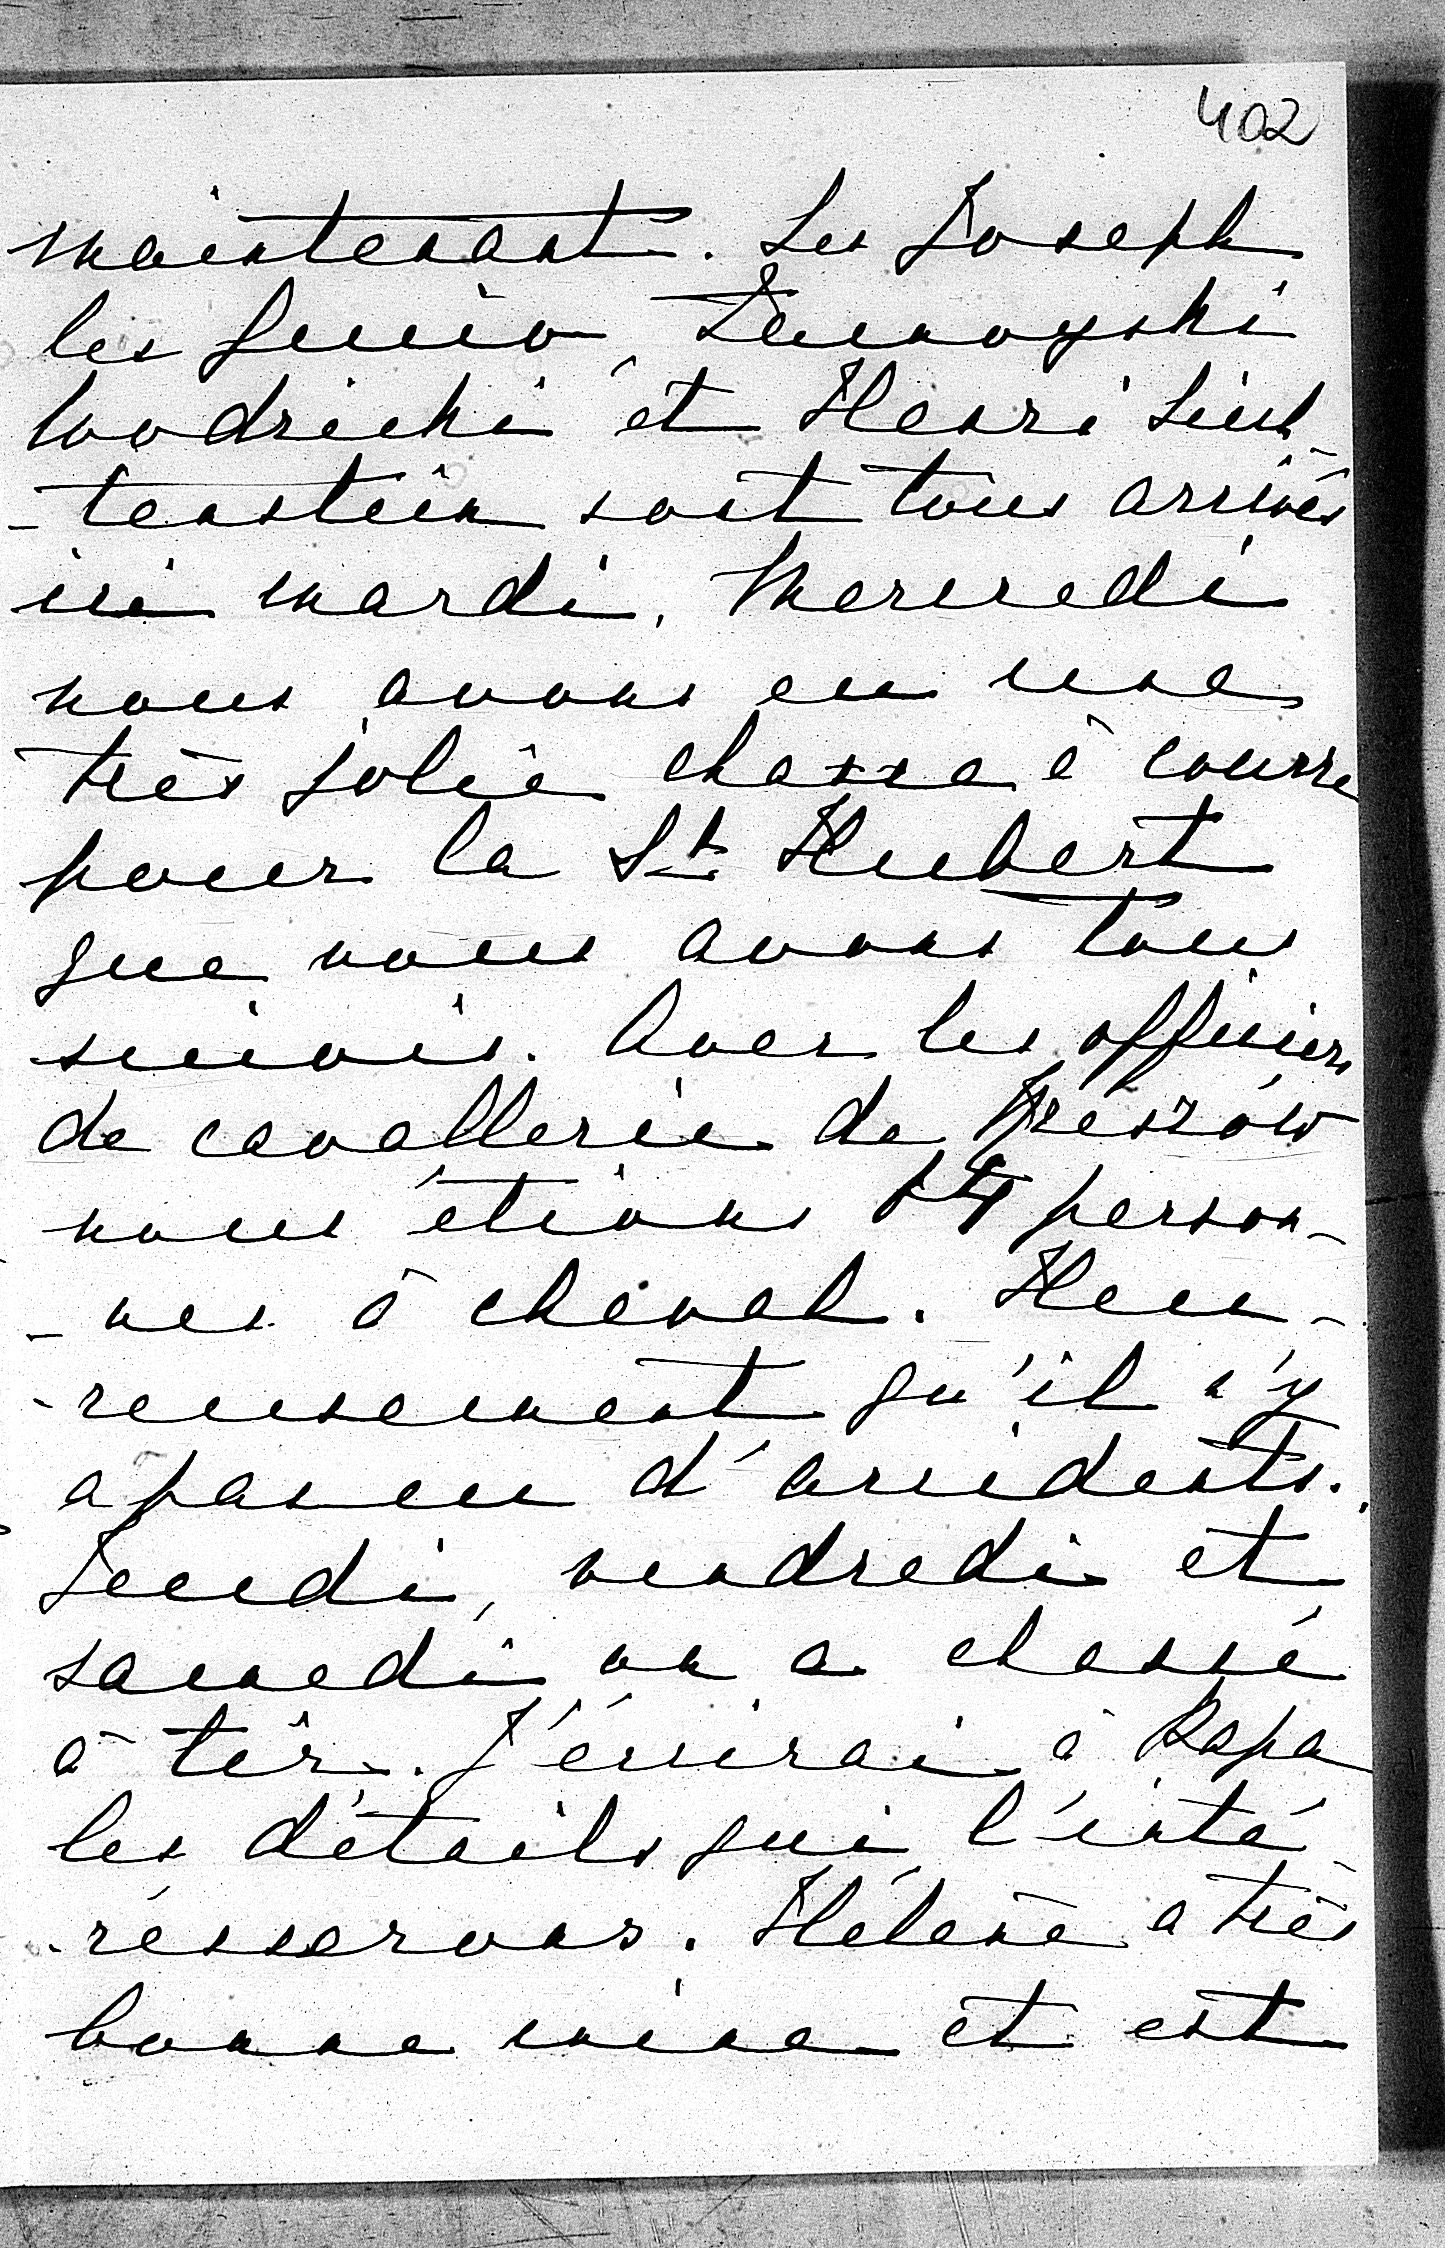 402
maintenant. Les Joseph
les Gucio, Tarnowski
Wodzicki et Henri Liech-
-tenstein sont tous arrivés
ici mardi. Mercredi
nous avons eu une
très jolie chasse à courre
pour la St Hubert
que nous avons tous
suivis. Avec les officiers
de cavallerie de
nous étions 14 person-
-nes à cheval. Heu-
-reusement qu'il n'y
a pas eu d'accidents.
Jeudi, vendredi et
samedi on a chassé
à tir. J'écrirai à Papa
les détails qui l'inté-
-résserons. Hélène a très
bonne mine et est